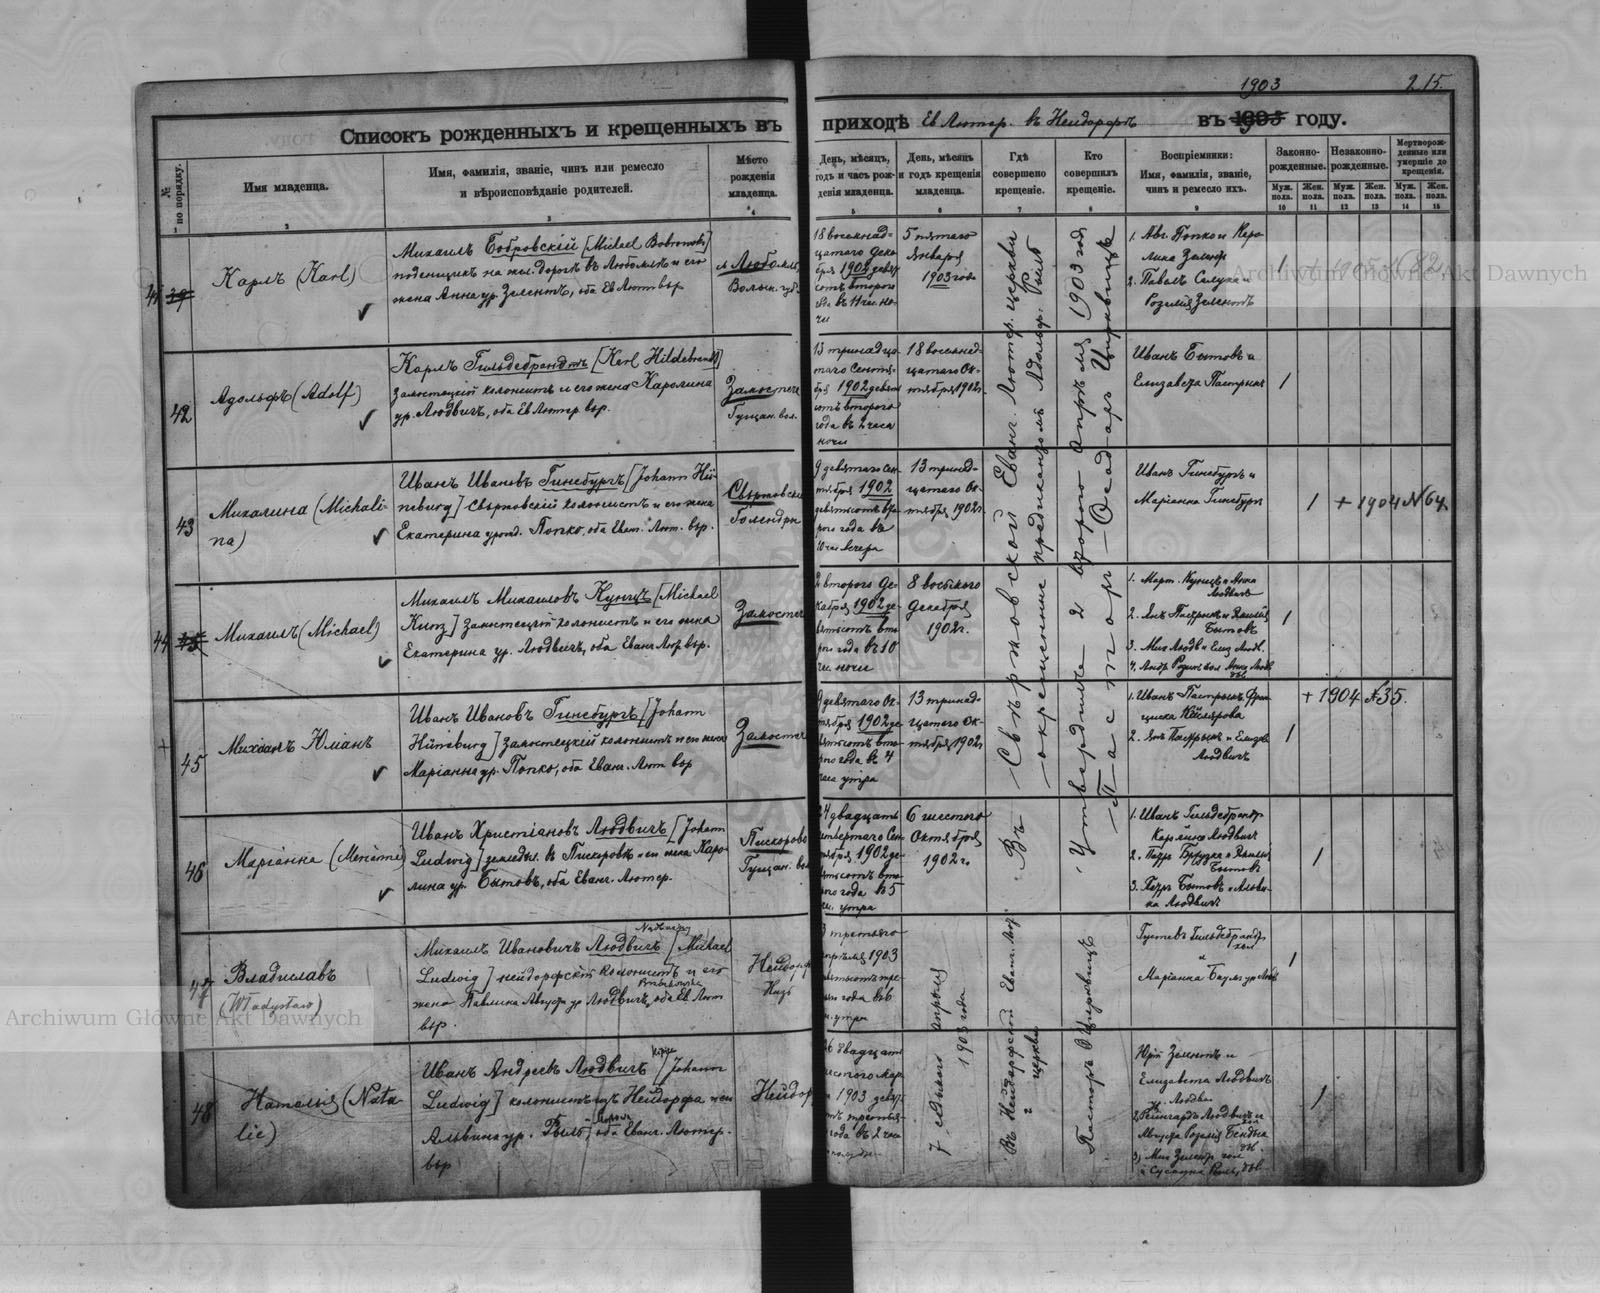 1903
215.
Списокъ рожденныхъ и крещенныхъ въ приходѣ Ев Лютер. въ Нейдорфъ въ 1903 году.
№ по порядку.
Имя младенца.
Имя, фамилія, званіе, чинъ или ремесло
и вѣроисповѣданіе родителей.
Мѣсто
рожденія
младенца.
День, мѣсяцъ,
годъ и часъ рож-
денія младенца.
День, мѣсяцъ
и годъ крещенія
младенца.
Гдѣ
совершено
крещеніе.
Кто
совершилъ
крещеніе.
Воспріемники:
Имя, фамилія, званіе,
чинъ и ремесло ихъ.
Законно-
рожденные.
Незаконно-
рожденные.
Мертворож-
денные или
умершіе до
крещенія.
Муж. пола.
Жен. пола.
Муж. пола.
Жен. пола.
Муж. пола.
Жен. пола.
1 2 3 4 5 6 7 8 9 10 11 12 13 14 15
41
Карлъ (Karl)
Михаилъ Бобровскій [Michael Bobrowski]
поденщикъ на жел. дорогѣ въ Любомлѣ и его
жена Анна ур. Зелентъ, оба Ев Лют вѣр
м Любомль
Волын. губ.
18 восемнад-
цатаго Дека-
бря 1902 девят
сотъ второго
года въ 11 ч. но-
чи
5 пятаго
Января
1903 года
1. Авг. Попко и Каро
лина Зелент
2. Павелъ Салуха и
Розалія Зелентъ
1
42
Адольфъ (Adolf)
Карлъ Гильдебрандтъ [Karl Hildebrandt]
Замостецкій колонистъ и его жена Каролина
ур. Людвигъ, оба Ев Лютер вѣр.
Замостече
Гущан. вол.
13 тринадца-
таго Сентя-
бря 1902 девят
сотъ второго
года въ 2 часа
ночи
18 восемнад-
цатаго Ок-
тября 1902г.
Иванъ Бытовъ и
Елизавета Пастрыкъ
1
43
Михалина (Michali-
na)
Иванъ Ивановъ Гинсбургъ [Johann Hü-
neburg] Свержовскій колонистъ и его жена
Екатерина урожд. Попко, оба Еванг. Лют. вѣр.
Свержовскіе
Голендры
9 девятаго Сен-
тября 1902
девятьсотъ вто-
рого года въ
10 час вечера
13 тринад-
цатаго Ок-
тября 1902г.
Иванъ Гинсбургъ и
Маріанна Гинсбургъ
1
+ 1904 № 64
44
Михаилъ (Michael)
Михаилъ Михаиловъ Кунцъ [Michael
Kunz] Замостецкій колонистъ и его жена
Екатерина ур. Людвигъ, оба Еванг Лют вѣр.
Замостече
2 второго Де-
кабря 1902 де-
вятьсотъ вто
рого года въ 10
ч. ночи
8 восьмого
Декабря
1902г.
1. Март. Кунцъ и Анна
Людвигъ
2. Янъ Пастрыкъ и
Бытовъ
3. Мих Людв и Елиз Людв.
1
45
Михаилъ Юліанъ
Иванъ Ивановъ Гинсбургъ [Johann
Hüneburg] Замостецкій колонистъ и его жена
Маріанна ур. Попко, оба Еванг. Лют вѣр
Замостече
9 девятаго Ок-
тября 1902 де-
вятьсотъ вто-
рого года въ 4
часа утра
13 тринад-
цатаго Ок-
тября 1902г
1. Иванъ Пастрыкъ Фран
циска
2. Янъ Пастрыкъ и Елизав
Людвигъ
1
+ 1904 № 35.
46
Маріанна (Marianne)
Иванъ Христіановъ Людвигъ [Johann
Ludwig] земледѣл. въ Пискоровѣ и его жена Каро-
лина ур. Бытовъ, оба Еванг. Лютер.
Пискорово
Гущан. вол
24 двадцать
четвертаго Сен
тября 1902 де-
вятьсотъ вто-
рого года въ 5
ч. утра
6 шестого
Октября
1902 г.
1. Иванъ Гильдебрандт
Каролина Людвигъ
2.
Бытовъ
3. Петръ Бытовъ и Альви-
на Людвигъ
1
Въ Свержовской Еванг. Лютер. церкви
окрещенные предикантомъ Адольф. Риль
Утвердилъ 2 второго Апрѣля 1903 год
Пасторъ Оскаръ Цирквицъ
47
Владиславъ
(Władysław)
Михаилъ Ивановичъ Людвигъ [Michael
Ludwig] нейдорфскій колонистъ и его
жена Павлина Августа ур Людвигъ, оба Ев Лют
вѣр.
Нейдорф
третьяго
апрѣля 1903
девятьсотъ тре-
тьяго года въ 6
ч. утра
7 седьмого апрѣля
1903 года
Въ Нейдорфской Еванг. Лют.
церкви
Пасторъ О Цирквицъ
Густавъ Гильдебрандт
и
Маріанна Баум ур Людв
1
48
Наталья (Nata-
lie)
Иванъ Андреевъ Людвигъ [Johann
Ludwig] колонистъ изъ Нейдорфа и его
Альвина ур. Риль, оба Еванг. Лютер.
вѣр
Нейдорф
26 двадцать
шестого мар
та 1903 девят
сотъ третьяго
года въ 2 часа
Юрій Зелентъ и
Елизавета Людвигъ
2) Рейнгардъ Людвигъ и
Августа Розалія
3) Мих Зелентъ
и Сусанна Риль
1
Archiwum Główne Akt Dawnych
Archiwum Główne Akt Dawnych